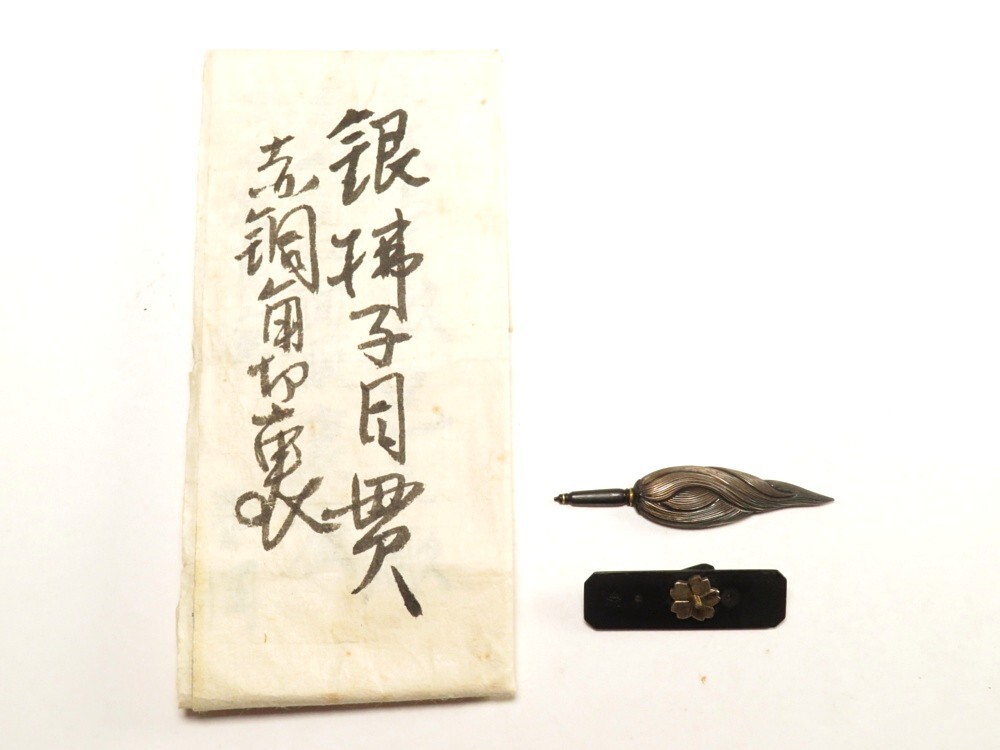 銀拂子目貫
赤銅角切裏